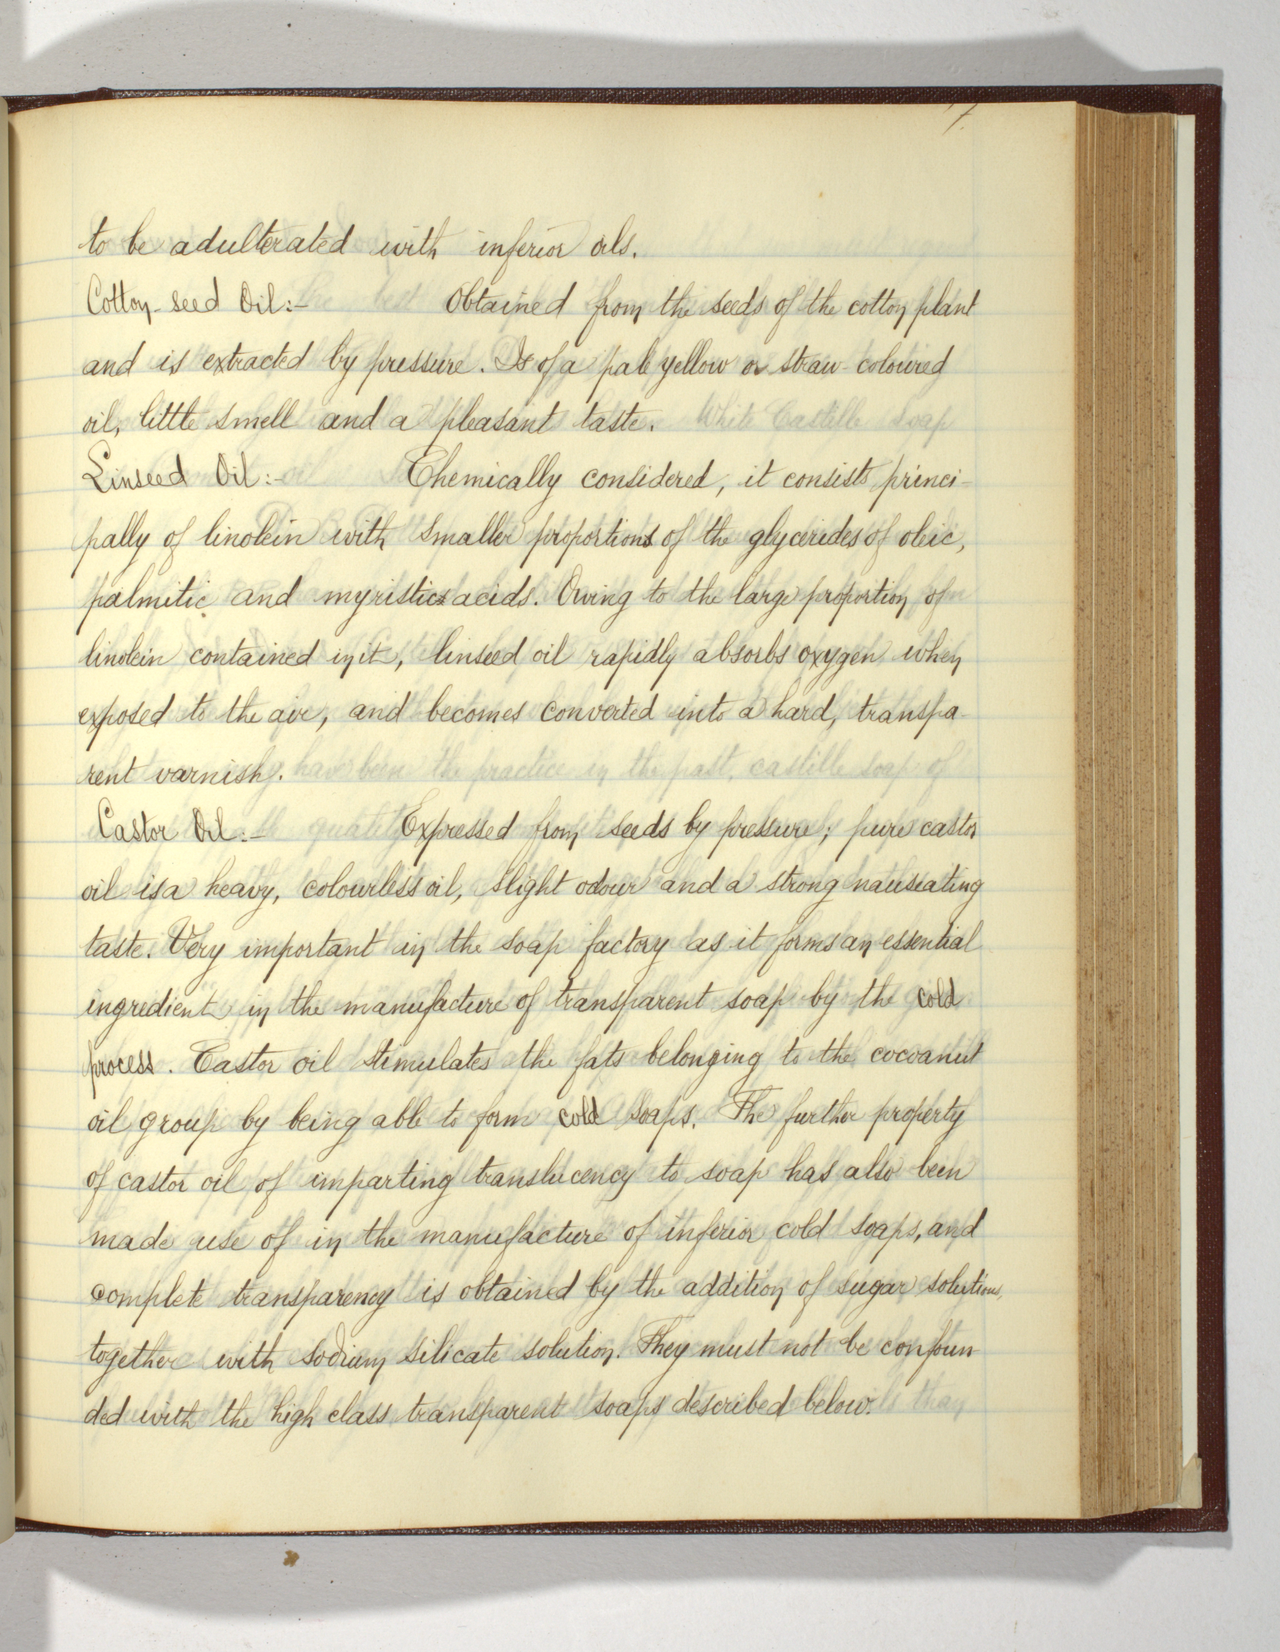 7.
to be adulterated with inferior oils.
Cotton-seed Oil:- Obtained from the seeds of the cotton plant
and is extracted by pressure. Is of a pale yellow or straw-coloured
oil, little smell and a pleasant taste.
Linseed Oil:- Chemically considered, it consists princi-
pally of linolein with smaller proportions of the glycerides of oleic,
palmitic and myristic acids. Owing to the large proportion of
linolein contained in it, linseed oil rapidly absorbs oxygen when
exposed to the air, and becomes converted into a hard, transpa-
rent varnish.
Castor Oil:- Expressed from seeds by pressure; pure castor
oil is a heavy, colourless oil, slight odour and a strong nauseating
taste. Very important in the soap factory as it forms an essential
ingredient in the manufacture of transparent soap by the cold
process. Castor oil stimulates the fats belonging to the cocoanut
oil group by being able to form cold soaps. The further property
of castor oil of imparting translucency to soap has also been
made use of in the manufacture of inferior cold soaps, and
complete transparency is obtained by the addition of sugar solutions,
together with sodium silicate solution. They must not be confoun
ded with the high class transparent soaps described below.